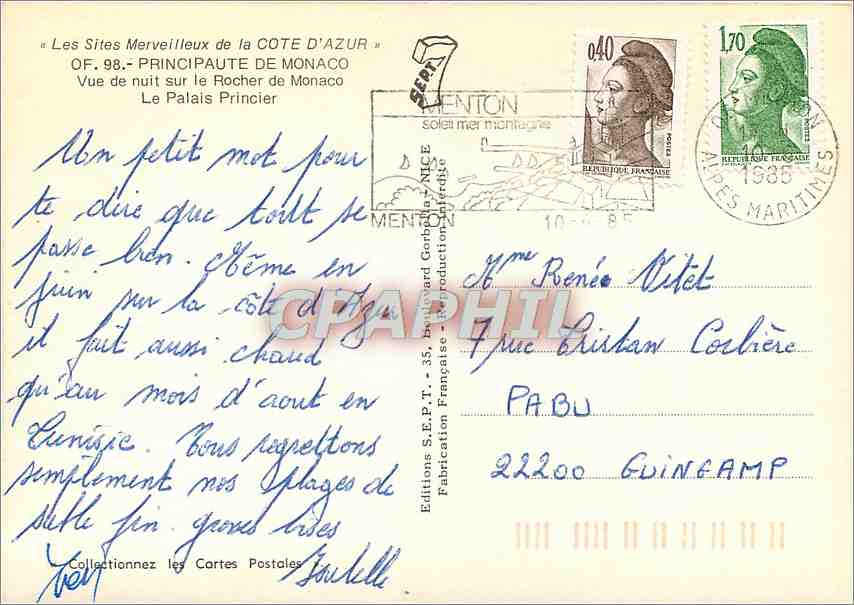 « Les Sites Merveilleux de la COTE D'AZUR »
OF. 98.- PRINCIPAUTE DE MONACO
Vue de nuit sur le Rocher de Monaco
Le Palais Princier
Un petit mot pour
te dire que tout se
passe bien. Même en
juin sur la côte d'Azur
il fait aussi chaud
qu'au mois d'aout en
Tunisie. Nous regrettons
semplement nos plages de
sable fin. Groses bises
- Collectionnez les Cartes Postales !
SEPT
MENTON
soleil mer montagne
MENTON
10- - 85
0,40
POSTES
REPUBLIQUE FRANÇAISE
1,70
POSTES
REPUBLIQUE FRANÇAISE
1985
ALPES MARITIMES
Editions S.E.P.T. - 35, Boulevard Gorbella - NICE
Fabrication Française - Reproduction Interdite
CPAPHIL
Mme Renée Vitet
7 rue Tristan Corbière
PABU
22200 GUINGAMP